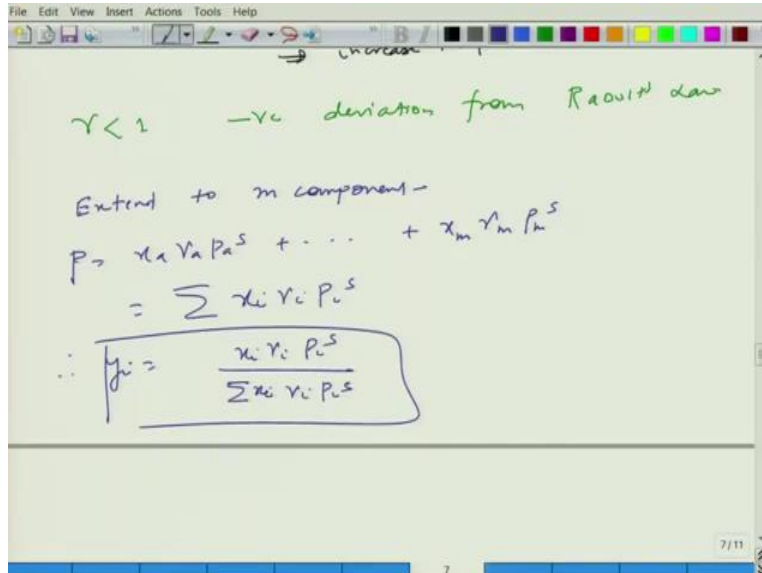 File Edit View Insert Actions Tools Help
B I
→ increase
γ < 1 -ve deviation from Raoult's Law
Extend to m component -
P = xₐ γₐ Pₐˢ + .... + xₘ γₘ Pₘˢ
= ∑ xᵢ γᵢ Pᵢˢ
∴ yᵢ = xᵢ γᵢ Pᵢˢ / ∑ xᵢ γᵢ Pᵢˢ
7/11
7